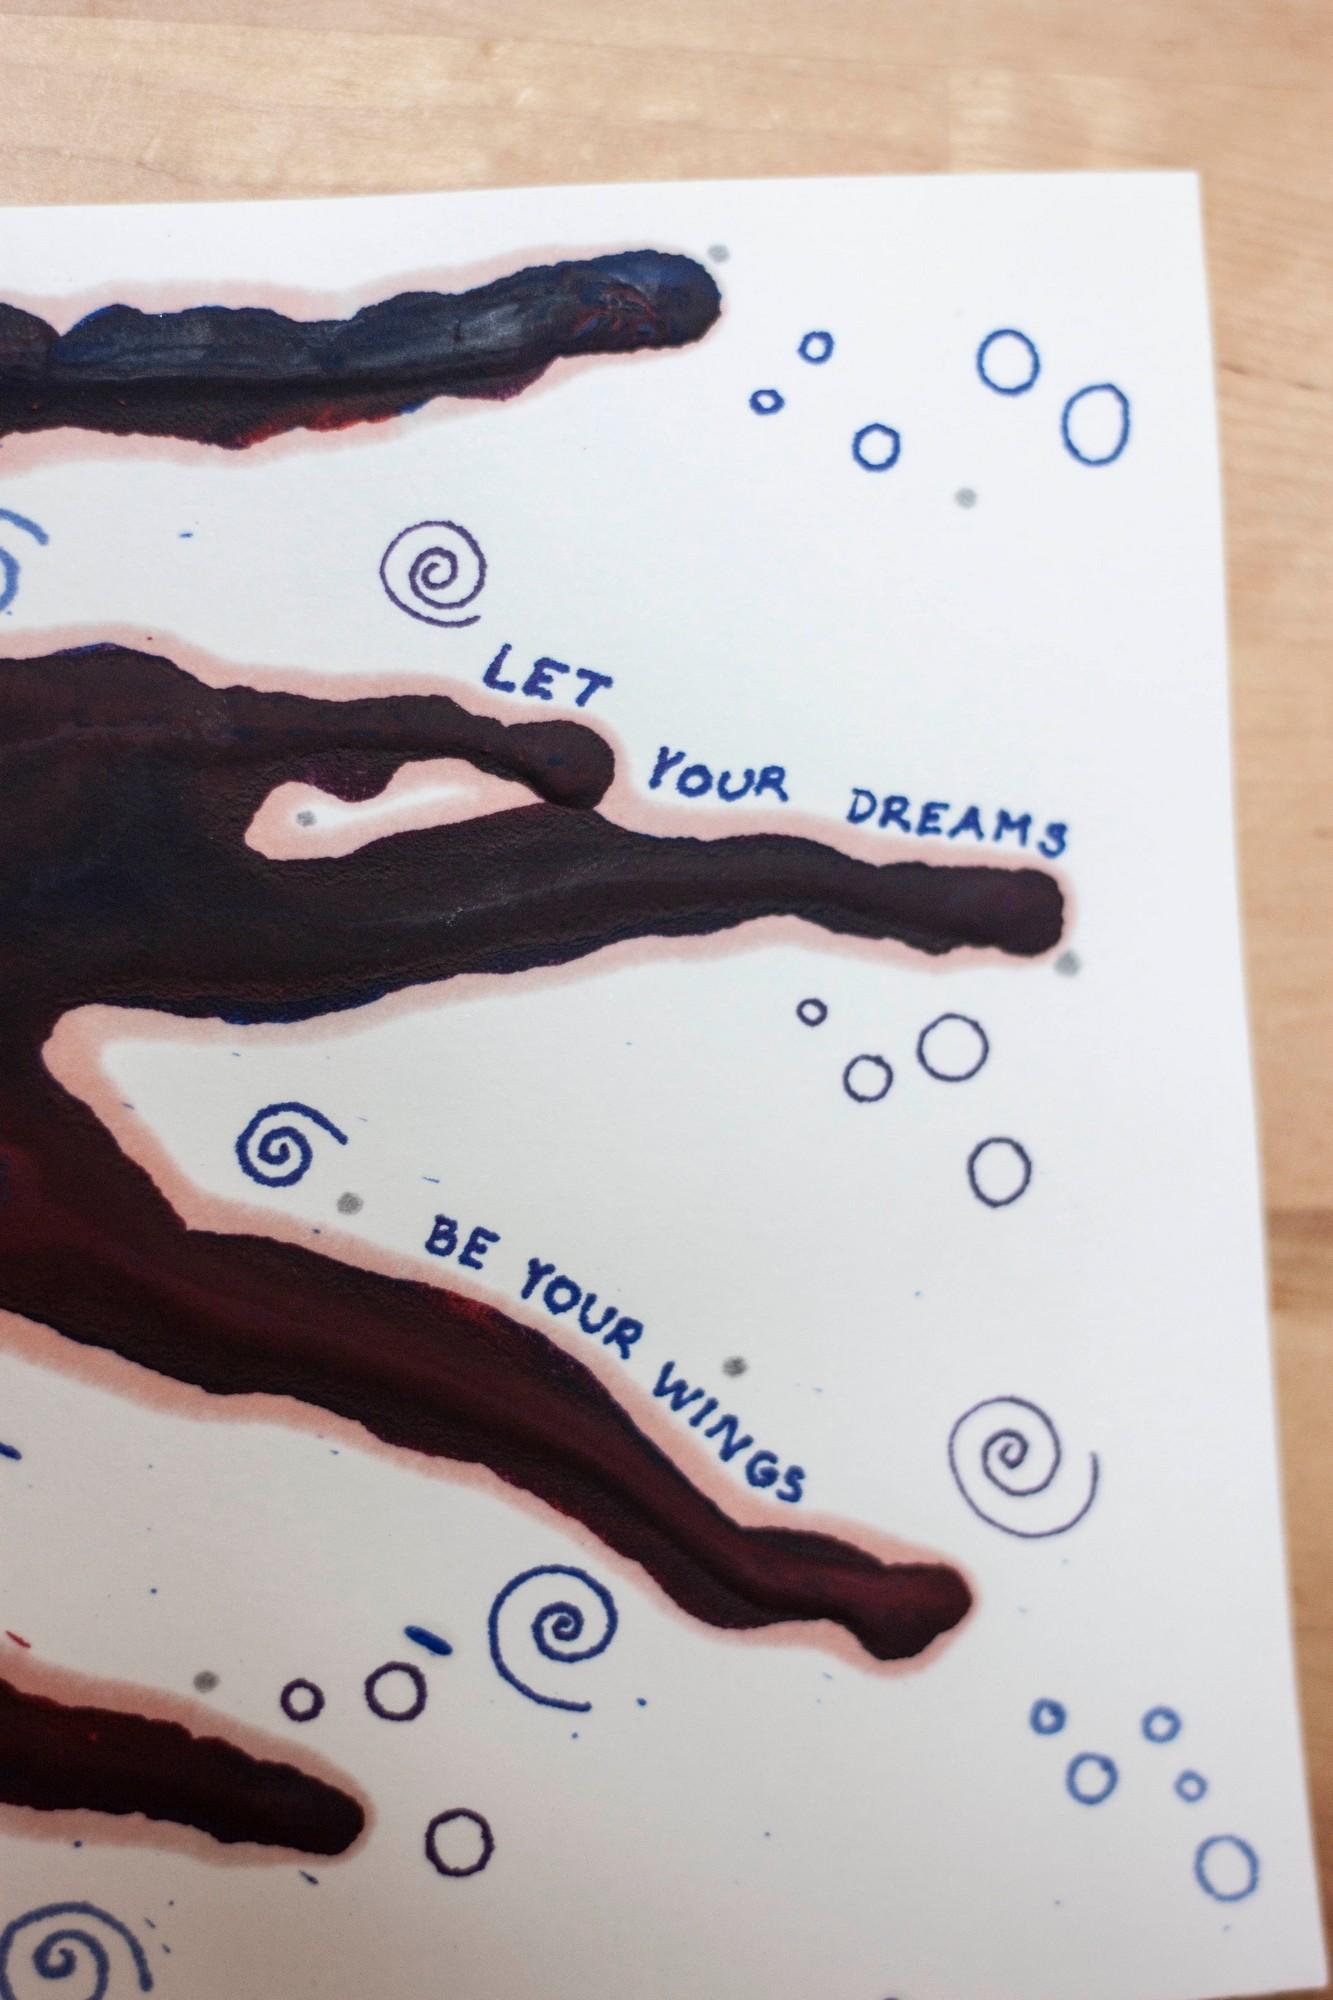 LET YOUR DREAMS
BE YOUR WINGS